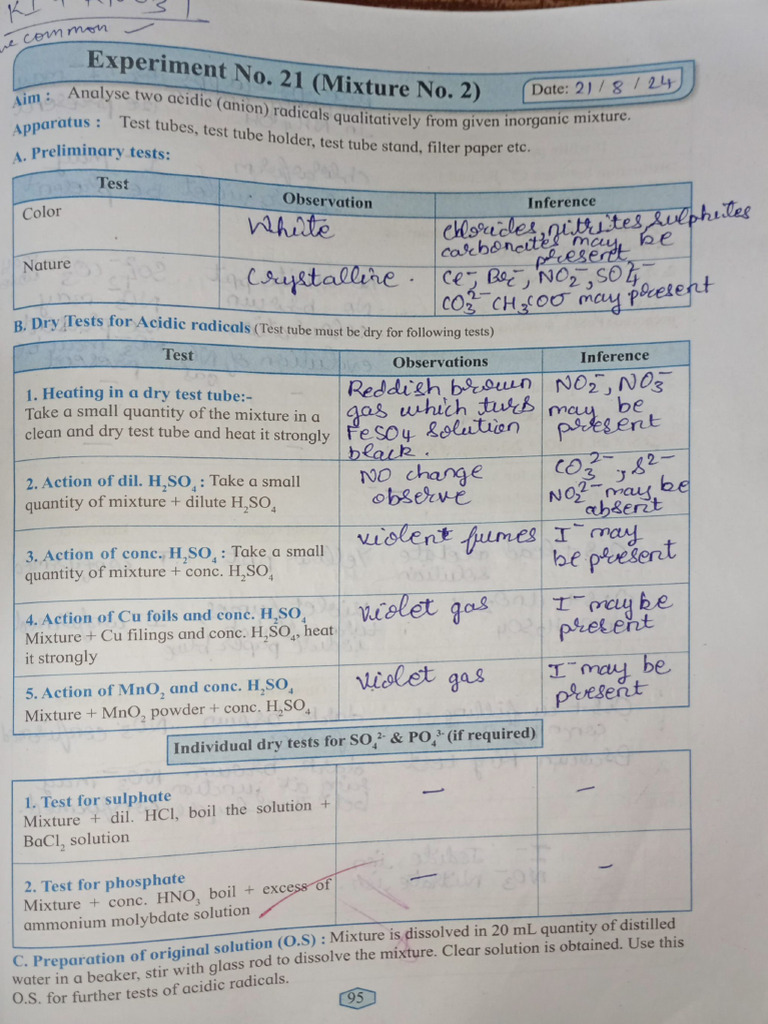 KI + KNO3
common
Experiment No. 21 (Mixture No. 2)
Date: 21 / 8 / 24
Aim : Analyse two acidic (anion) radicals qualitatively from given inorganic mixture.
Apparatus : Test tubes, test tube holder, test tube stand, filter paper etc.
A. Preliminary tests:
Test Observation Inference
Color White chlorides, nitrites, sulphites
carbonates may be
present
Nature Crystalline. Cl⁻, Br⁻, NO₂⁻, SO4²⁻
CO₃²⁻ CH₃COO may present
B. Dry Tests for Acidic radicals (Test tube must be dry for following tests)
Test Observations Inference
1. Heating in a dry test tube:-
Take a small quantity of the mixture in a
clean and dry test tube and heat it strongly
Reddish brown
gas which turs
FeSO4 solution
black.
NO₂⁻, NO₃⁻
may be
present
2. Action of dil. H₂SO₄ : Take a small
quantity of mixture + dilute H₂SO₄
NO change
observe
CO₃²⁻, S²⁻
NO₂²⁻ may be
absent
3. Action of conc. H₂SO₄ : Take a small
quantity of mixture + conc. H₂SO₄
violent fumes
I⁻ may
be present
4. Action of Cu foils and conc. H₂SO₄
Mixture + Cu filings and conc. H₂SO₄, heat
it strongly
violet gas
I⁻ may be
present
5. Action of MnO₂ and conc. H₂SO₄
Mixture + MnO₂ powder + conc. H₂SO₄
violet gas
I⁻ may be
present
Individual dry tests for SO₄²⁻ & PO₄³⁻ (if required)
1. Test for sulphate
Mixture + dil. HCl, boil the solution +
BaCl₂ solution
—
—
2. Test for phosphate
Mixture + conc. HNO₃ boil + excess of
ammonium molybdate solution
—
—
C. Preparation of original solution (O.S) : Mixture is dissolved in 20 mL quantity of distilled
water in a beaker, stir with glass rod to dissolve the mixture. Clear solution is obtained. Use this
O.S. for further tests of acidic radicals.
95